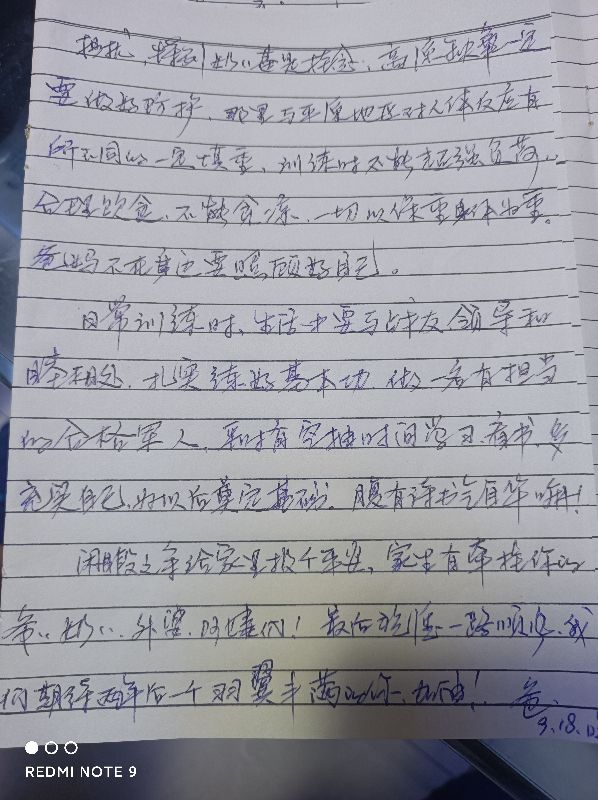 奶奶甚是挂念,高原缺氧一定
要做好防护,那里与平原地区对人体反应有
所不同的一定慎重,训练时不能超强负荷,
合理饮食,不能食凉,一切以保重身体为重,
爸妈不在身边要照顾好自己。
日常训练时,生活中要与战友领导和
睦相处,扎实练好基本功 做一名有担当
的合格军人,空抽时间学习看书,多
充实自己,为以后奠定基础,腹有诗书气自华哦!
闲暇之余给家里报个平安,家里有牵挂你的
爷爷奶奶、外婆、们!最后祝您一路顺风,我
们期待两年后一个羽翼丰满的你、加油! 爸
9.18.
REDMI NOTE 9